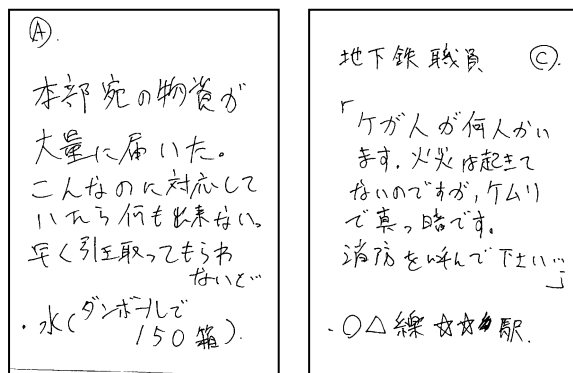 Ⓐ.
本部宛の物資が
大量に届いた。
こんなのに対応して
いたら何も出来ない。
早く引き取ってもらわ
ないと…
・水(ダンボールで
150箱).
地下鉄職員 Ⓒ.
「ケガ人が何人かい
ます。火災は起きて
ないのですが,ケムリ
で真っ暗です。
消防を呼んで下さい…」
・○△線☆☆駅.